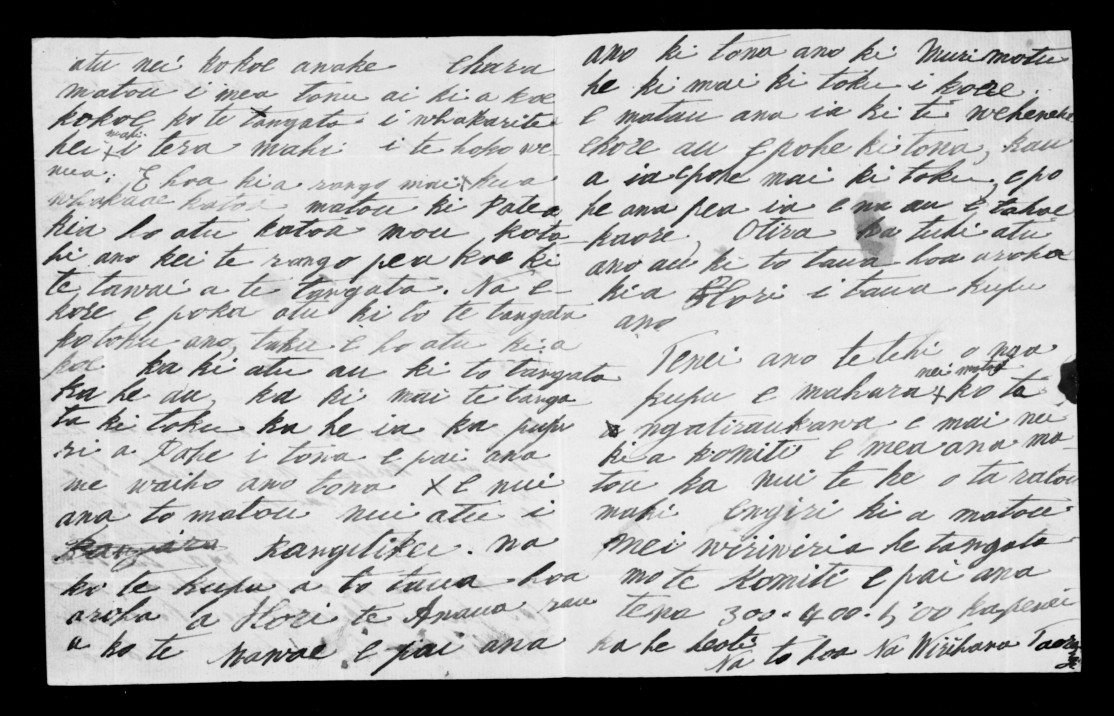 atu nei kokoe anake ehara
matou i mea tonu ai ki a koe
kokoe ko te tangata i whakarite
hei mahi
i tera mahi i te hoko we-
nua: E hoa kia rongo mai kua
whakaae katoa matou ki Patea
kia ho atu katoa mou kota
hi ano kei te rongo pea koe ki
te tawai a te tangata. Na e-
kore e poka atu ki to te tangata
ko toku ano, taku e ho atu ki a
koe ka ki atu au ki to tangata
ka he au, ka ki mai te tanga
ta ki toku ka he ia ka pupu
ri a Pohe i tona e pai ana
me waiho ano tona x e nui
ana to matou nui atu i
Rangitikei. na
ko te kupu a to taua hoa
aroha a Hori te Anaua rau
a ko te Mawae e pai ana
ano ki tona ano ki Murimotu
he ki mai ki toku i koere
e matau ana ia ki te wehenehe
ekore au e pohe ki tona, kau
a ia e pohe mai ki toku, e po
he ana pea ia e nui au e tahae
kaore, Otira ka tuhi atu
ano au ki to taua hoa aroha
kia Hori i taua kupu
ano
Tenei ano tetehi o nga
kupu e mahara nei matou ko ta
ngatiraukawa e mai nei
ki a komiti e mea ana ma
tou ka nui te he o ta ratou
mahi engiri ki a matou
mei wiriwiria he tangata
mo te Komiti e pai ana
tena 300. 400. 500 ka penei
ka he heoti
Na to hoa Na Wirihana